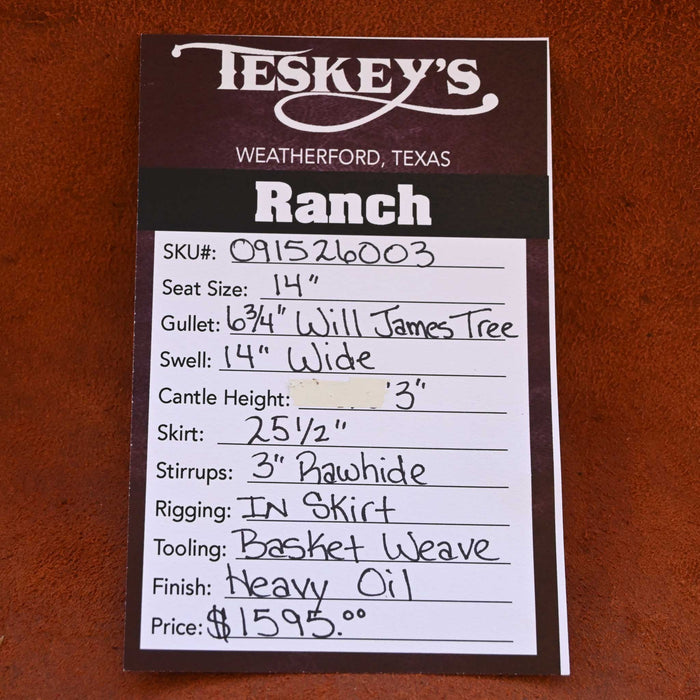 TESKEY'S
WEATHERFORD, TEXAS
Ranch
SKU#: 091526003
Seat Size: 14"
Gullet: 6 3/4" Will James Tree
Swell: 14" Wide
Cantle Height: 3"
Skirt: 25 1/2"
Stirrups: 3" Rawhide
Rigging: IN Skirt
Tooling: Basket Weave
Finish: Heavy Oil
Price: $1595.00